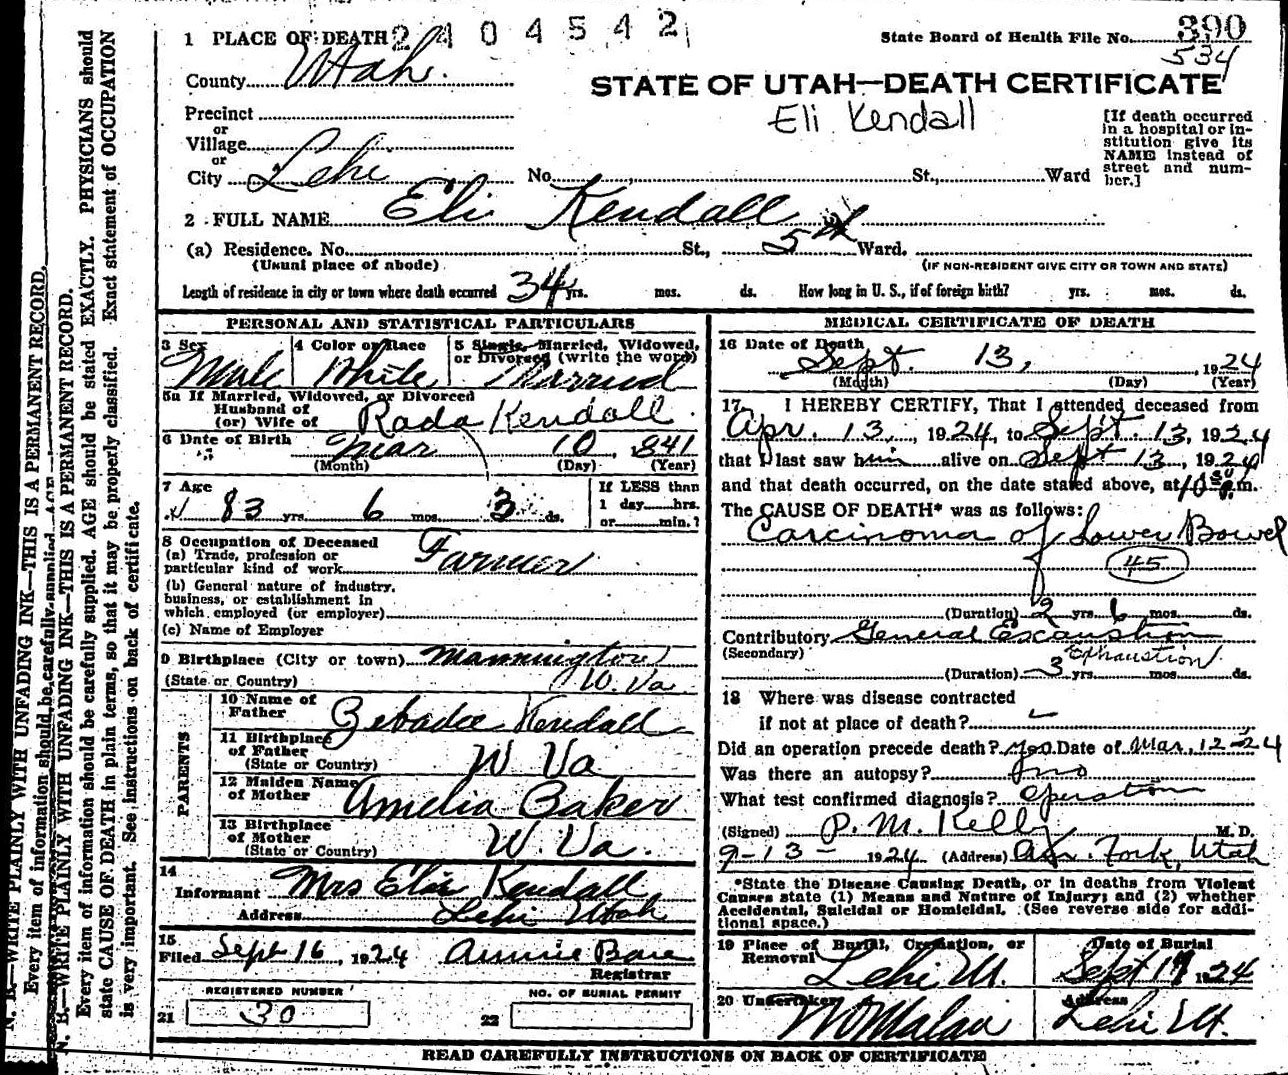 1 PLACE OF DEATH 2404542
State Board of Health File No. 390
534
County Utah.
STATE OF UTAH—DEATH CERTIFICATE
Eli Kendall
Precinct
or
Village
or
City Lehi No. St., Ward
[If death occurred
in a hospital or in-
stitution give its
NAME instead of
street and num-
ber.]
2 FULL NAME Eli Kendall
(a) Residence. No. St., 5th Ward.
(Usual place of abode) (IF NON-RESIDENT GIVE CITY OR TOWN AND STATE)
Length of residence in city or town where death occurred 34 yrs. mos. ds. How long in U. S., if of foreign birth? yrs. mos. ds.
PERSONAL AND STATISTICAL PARTICULARS
3 Sex 4 Color or Race 5 Single, Married, Widowed,
or Divorced (write the word)
Male White Married
5a If Married, Widowed, or Divorced
Husband of
(or) Wife of Rada Kendall
6 Date of Birth Mar 10, 1841
(Month) (Day) (Year)
7 Age
83 yrs. 6 mos. 3 ds.
If LESS than
1 day hrs.
or min.?
8 Occupation of Deceased
(a) Trade, profession or
particular kind of work Farmer
(b) General nature of industry,
business, or establishment in
which employed (or employer)
(c) Name of Employer
9 Birthplace (City or town) Mannington
(State or Country) W. Va
PARENTS
10 Name of
Father Zebadee Kendall
11 Birthplace
of Father
(State or Country) W Va
12 Maiden Name
of Mother Amelia Baker
13 Birthplace
of Mother
(State or Country) W. Va.
14
Informant Mrs Eli Kendall
Address Lehi Utah
15
Filed Sept 16, 1924 Annie Bone
Registrar
REGISTERED NUMBER NO. OF BURIAL PERMIT
21 30 22
MEDICAL CERTIFICATE OF DEATH
16 Date of Death
Sept. 13, 1924
(Month) (Day) (Year)
17 I HEREBY CERTIFY, That I attended deceased from
Apr. 13, 1924, to Sept. 13, 1924
that I last saw him alive on Sept 13, 1924
and that death occurred, on the date stated above, at 10 30 P.m.
The CAUSE OF DEATH* was as follows:
Carcinoma of Lower Bowel
45
(Duration) 2 yrs 6 mos. ds.
Contributory General Excaustion
(Secondary) Exhaustion
(Duration) 3 yrs. mos. ds.
18 Where was disease contracted
if not at place of death?
Did an operation precede death? yes Date of Mar. 12-24
Was there an autopsy? no
What test confirmed diagnosis? Operation
(Signed) P. M. Kelly M. D.
9-13- 1924 (Address) Am. Fork, Utah
*State the Disease Causing Death, or in deaths from Violent
Causes state (1) Means and Nature of Injury; and (2) whether
Accidental, Suicidal or Homicidal. (See reverse side for addi-
tional space.)
19 Place of Burial, Cremation, or
Removal Lehi U.
Date of Burial
Sept 17 1924
20 Undertaker
Address
Lehi Ut.
READ CAREFULLY INSTRUCTIONS ON BACK OF CERTIFICATE
N. B.—WRITE PLAINLY WITH UNFADING INK—THIS IS A PERMANENT RECORD.
Every item of information should be carefully supplied. AGE
N. B.—WRITE PLAINLY WITH UNFADING INK—THIS IS A PERMANENT RECORD.
Every item of information should be carefully supplied. AGE should be stated EXACTLY. PHYSICIANS should
state CAUSE OF DEATH in plain terms, so that it may be properly classified. Exact statement of OCCUPATION
is very important. See instructions on back of certificate.